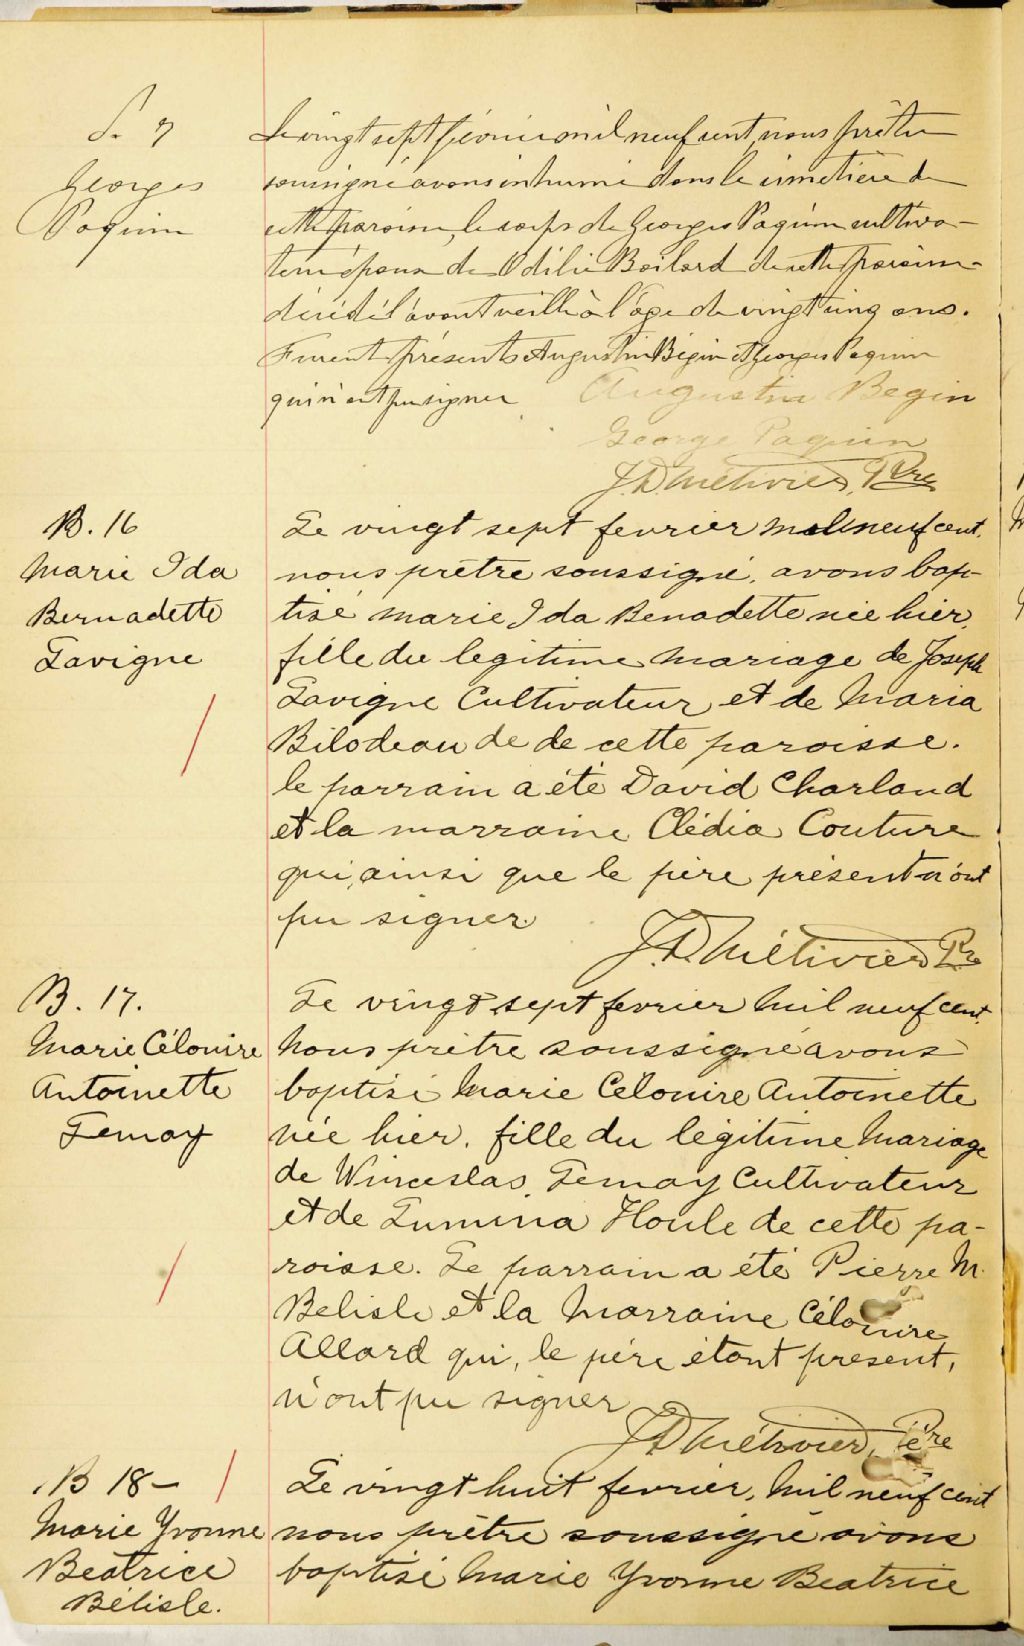 S. 7
Georges
Paquin
Le vingt sept février mil neuf cent, nous prêtre
soussigné avons inhumé dans le cimetière de
cette paroisse, le corps de Georges Paquin cultiva-
teur époux de Odilie Boilard de cette paroisse
décédé l'avant veille à l'âge de vingt cinq ans.
Furent présents Augustin Bégin et Georges Paquin
qui n'ont pu signer
Augustin Begin
George Paquin
J.D Métivier, Ptre
B. 16
Marie Ida
Bernadette
Lavigne
Le vingt sept fevrier mil neuf cent,
nous prêtre soussigné, avons bap-
tisé Marie Ida Benadette née hier,
fille du legitime mariage de Joseph
Lavigne Cultivateur et de Maria
Bilodeau de de cette paroisse.
le parrain a été David Charland
et la marraine Clédia Couture
qui, ainsi que le père présent n'ont
pu signer.
J.D. Métivier Ptre
B. 17.
Marie Célouire
Antoinette
Lemay
Le vingt sept fevrier Mil neuf cent,
Nous prêtre soussigné avons
baptisé Marie Célouire Antoinette
née hier, fille du légitime Mariage
de Winceslas Lemay Cultivateur
et de Lumina Houle de cette pa-
roisse. Le parrain a été Pierre M.
Belisle et la Marraine Célouire
Allard qui, le père étant present,
n'ont pu signer
J.D Métivier, Ptre
B 18 -
Marie Yvonne
Béatrice
Bélisle.
Le vingt huit fevrier, Mil neuf cent
nous prêtre soussigné avons
baptisé Marie Yvonne Beatrice